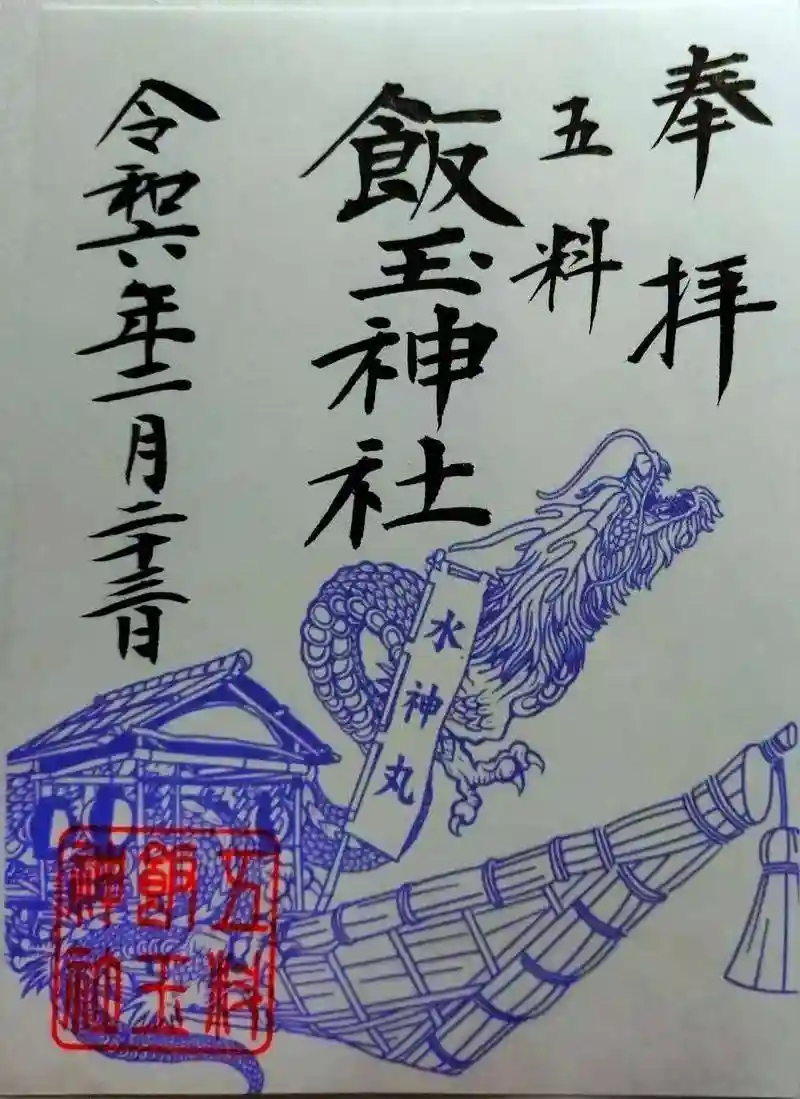 奉拝
五料
飯玉神社
令和六年二月二十三日
水神丸
五料
飯玉
神社